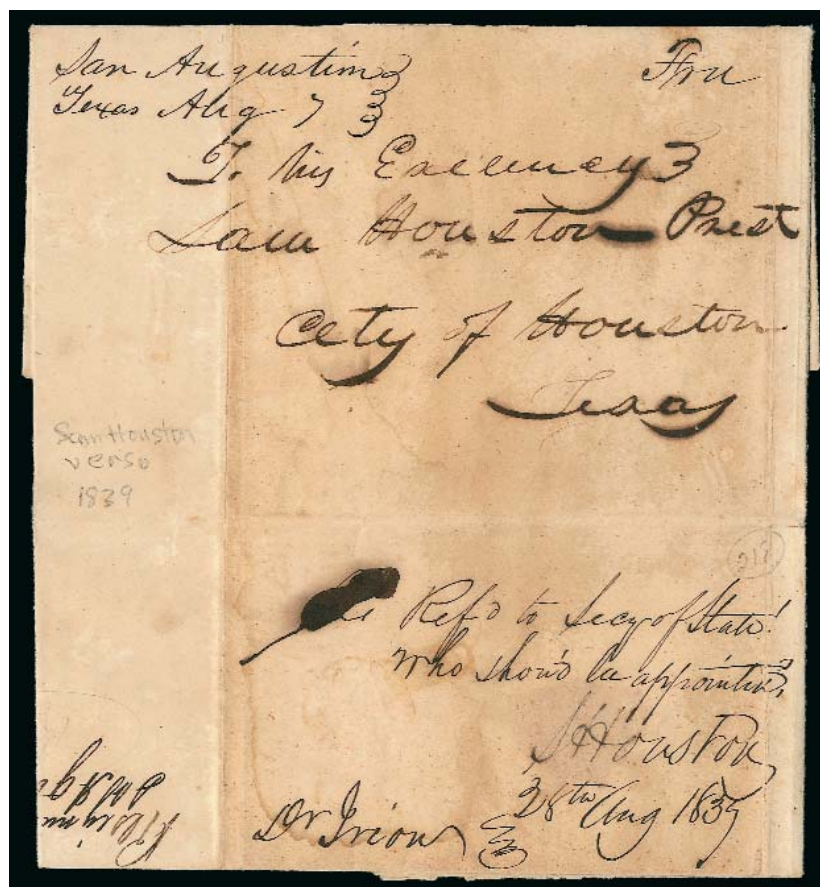 San Augustin
Texas Aug 7
Free
To his Excelency
Sam Houston Prest
City of Houston
Texas
Sam Houston
verso
1839
Ref'd to Secy of State!
Who shou'd be appointed,
S Houston,
28th Aug 1837
Dr Irion